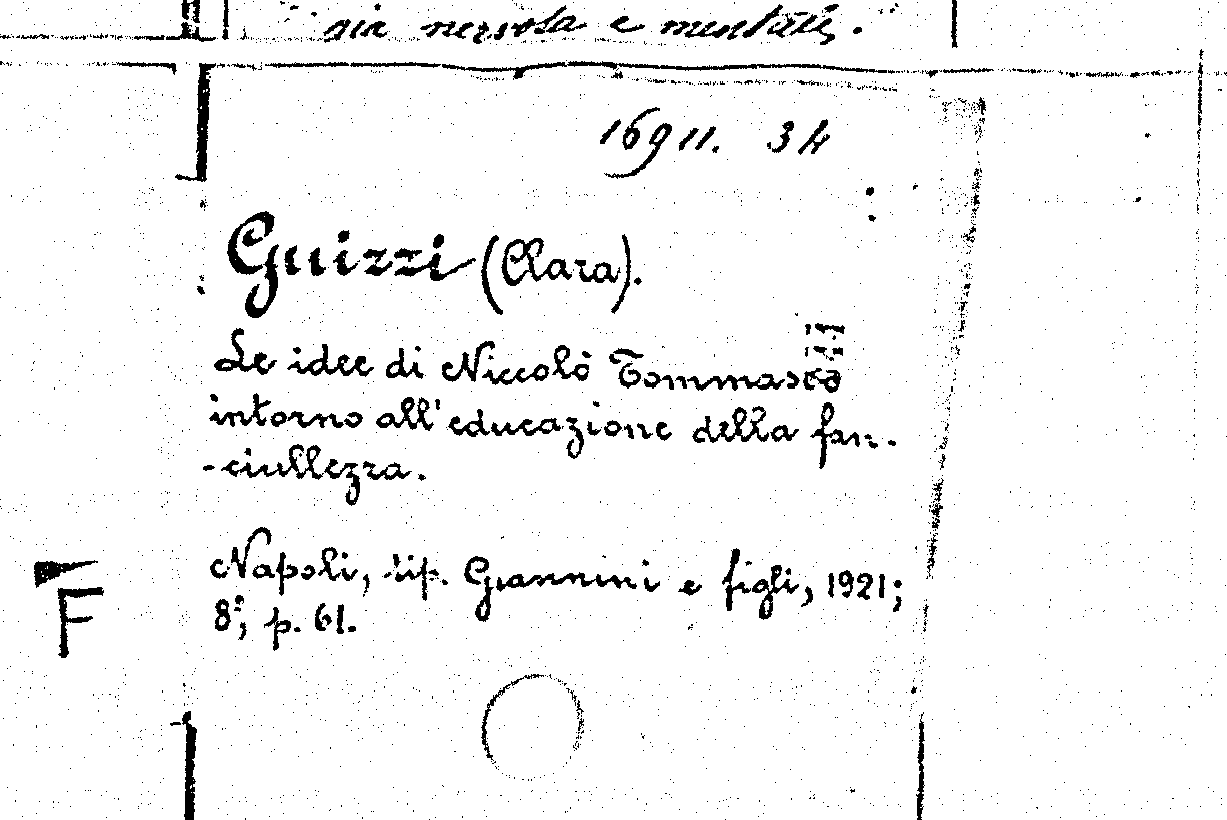 nervosa e mentale.
16911. 34
Guizzi (Clara).
Le idee di Niccolò Tommaseo
intorno all'educazione della fan-
-ciullezza.
Napoli, tip. Giannini e figli, 1921;
8°; p. 61.
F